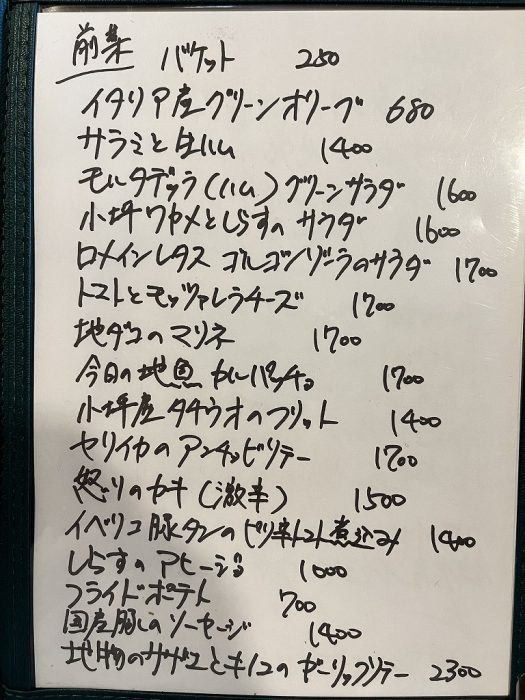 前菜 バケット 250
イタリア産グリーンオリーブ 680
サラミと生ハム 1400
モルタデッラ(ハム)グリーンサラダ 1600
小坪ワカメとしらすのサラダ 1600
ロメインレタス ゴルゴンゾーラのサラダ 1700
トマトとモッツァレラチーズ 1700
地ダコのマリネ 1700
今日の地魚カルパッチョ 1700
小坪産タチウオのフリット 1400
ヤリイカのアンチョビソテー 1700
怒りのカキ(激辛) 1500
イベリコ豚タンのピリ辛トマト煮込み 1400
しらすのアヒージョ 1000
フライドポテト 700
国産豚のソーセージ 1400
地物のサザエとキノコのガーリックソテー 2300